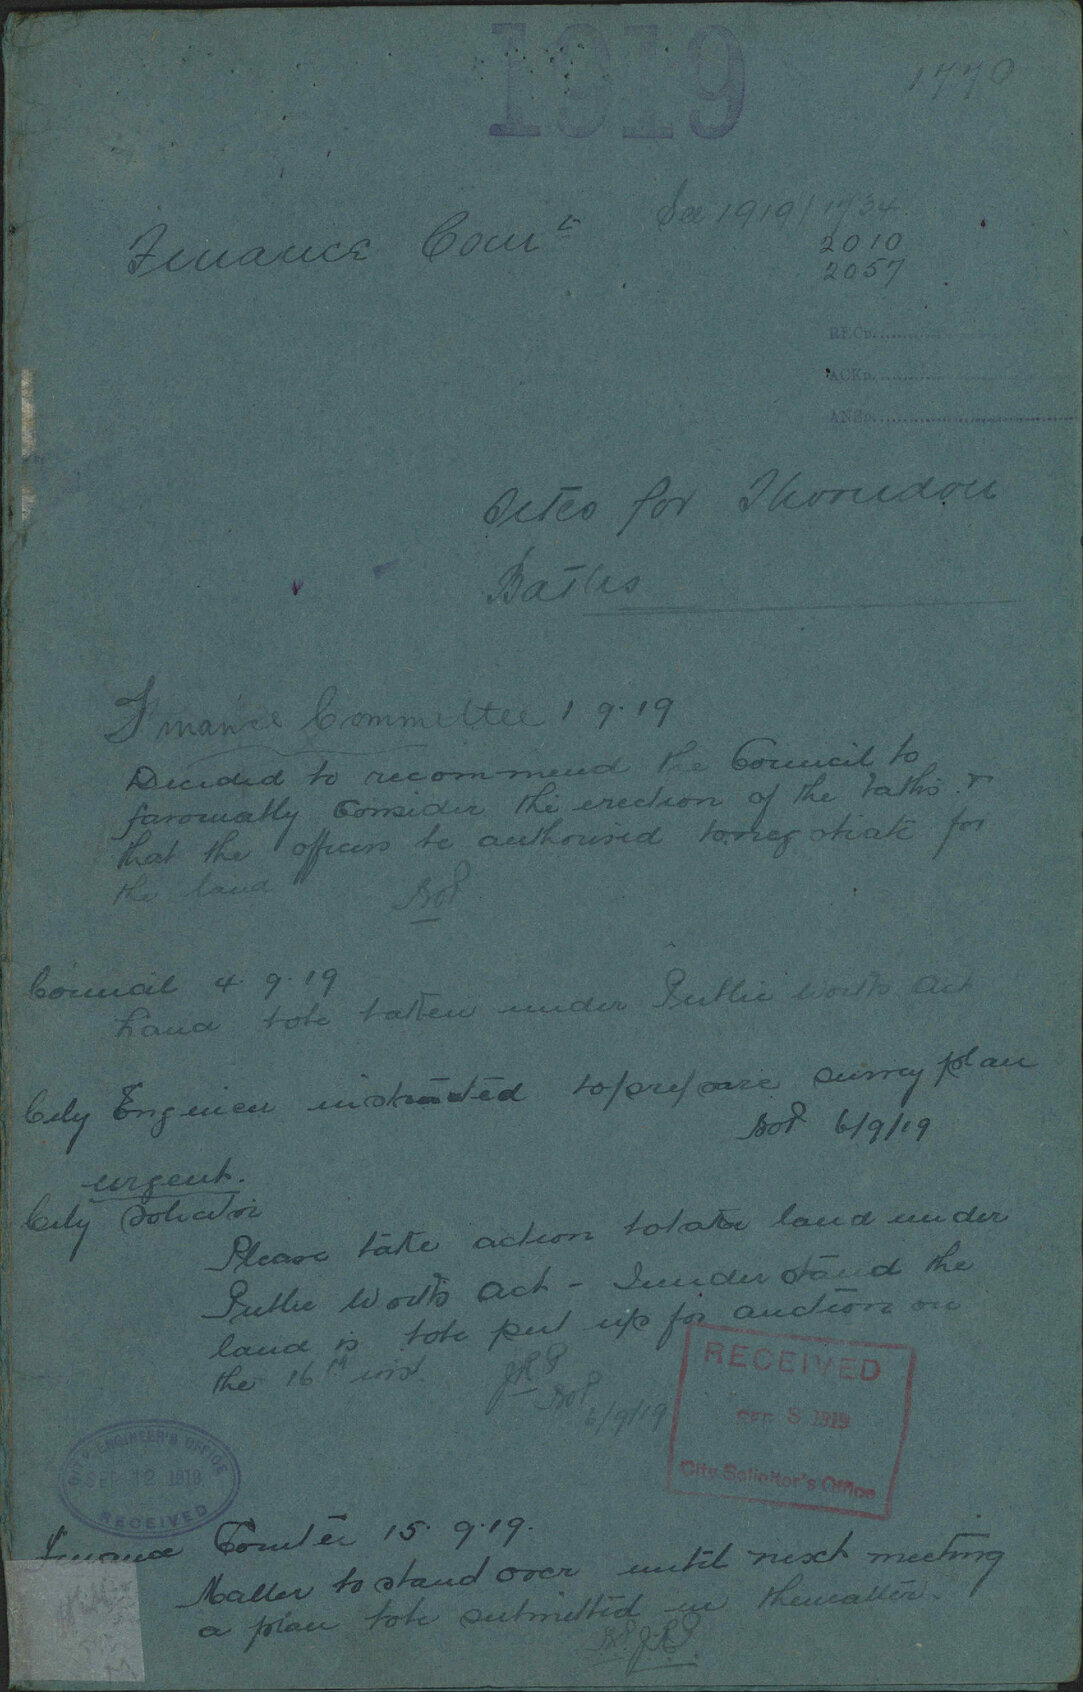 1919
1770
Finance Comte
See 1919/1734
2010
2057
RECD.
ACKD.
ANSD.
Sites for Thorndon
Baths
Finance Committee 1 9.19
Decided to recommend the Council to
favourably consider the erection of the baths &
that the officers be authorised to negotiate for
the land
Council 4.9.19
Land to be taken under Public Works Act
City Engineer instructed to prepare survey plan
6/9/19
urgent.
City Solicitor
Please take action to take land under
Public Works Act - I understand the
land is to be put up for auction on
the 16th inst.
JRP
6/9/19
RECEIVED
SEP. 8 1919
City Solicitor's Office
CITY ENGINEER'S OFFICE
SEP 12 1919
RECEIVED
Finance Comtee 15.9.19.
Matter to stand over until next meeting
a plan to be submitted in the matter.
JRP